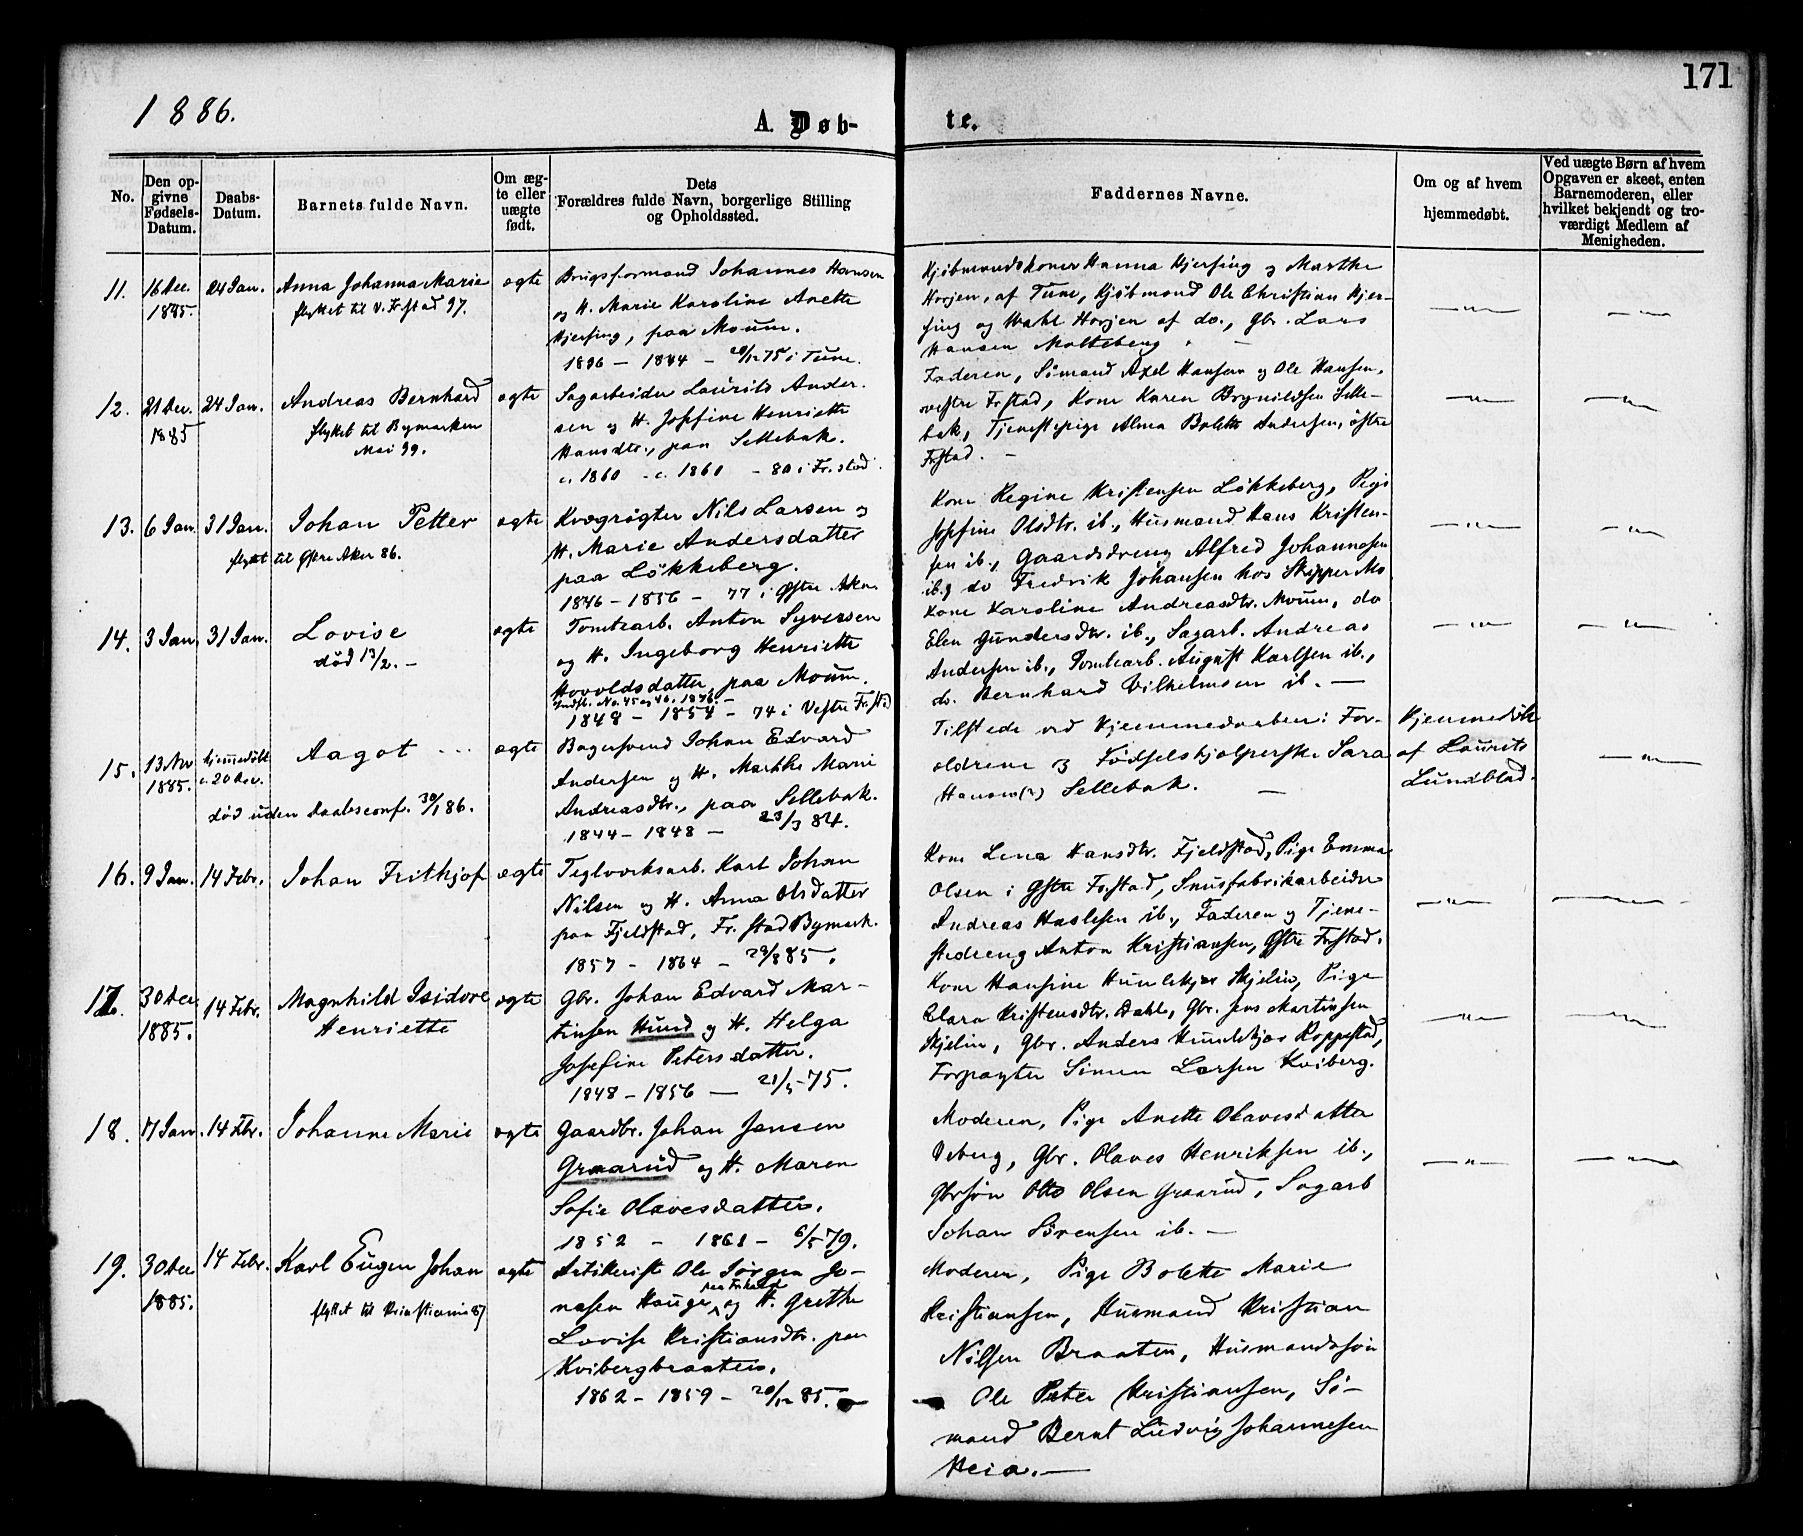 171
1886.
A. Døb-
te.
No.
Den op-
givne
Fødsels-
Datum.
Daabs-
Datum.
Barnets fulde Navn.
Om æg-
te eller
uægte
født.
Dets
Forældres fulde Navn, borgerlige Stilling
og Opholdssted.
Faddernes Navne.
Om og af hvem
hjemmedøbt.
Ved uægte Børn af hvem
Opgaven er skeet, enten
Barnemoderen, eller
hvilket bekjendt og tro-
værdigt Medlem af
Menigheden.
11.
16 Dec.
1885.
24 Jan.
Anna Johanna Marie
flyttet til V. Fr.stad 97.
ægte
Brugsformand Johannes Hansen
og H. Marie Karoline Anette
Hjersing, paa Moum.
1836 — 1844 — 28/12 75 i Tune.
Kjøbmandskoner Hanna Hjersing og Marthe
Horjen, af Tune, Kjøbmand Ole Christian Hjer-
sing og Horjen af do., Gbr. Lars
Hansen Molteberg
— " —
— " —
12.
21 Dec.
1885
24 Jan.
Andreas Bernhard
flyttet til Bymarken
Mai 99.
ægte
Sagarbeider Laurits Ander-
sen og H. Josefine Henriette
Hansdtr., paa Sellebak.
c. 1860 - c. 1860 - 80 i Fr.stad.
Faderen, Sömand Axel Hansen og Ole Hansen,
vestre Fr.stad, Kone Karen Brynildsen Selle-
bak, Tjenestepige Alma Bolette Andersen, östre
Fr.stad. —
— " —
— " —
13.
6 Jan.
31 Jan.
Johan Petter
flyttet til Østre Aker 86.
ægte
Kvægrøgter Nils Larsen og
H. Marie Andersdatter
paa Lökkeberg.
1846 — 1856 — 77 i Østre Aker
Kone Regine Kristensen Lökkeberg, Pige
Josefine Olsdtr. ib., Husmand Hans Kristen-
sen ib., Gaardsdreng Alfred Johannesen
ib., do Fredrik Johansen hos Skipper Mo
— " —
— " —
14.
3 Jan.
31 Jan.
Lovise
död 13/2. —
ægte
Tomtearb. Anton Syversen
og H. Ingeborg Henriette
Hovoldsdatter, paa Moum.
Indfl. No. 45 og 46. 1876. —
1848 — 1854 — 74 i Vestre Fr.std
Kone Karoline Andreasdtr. Moum, do
Elen Gundersdtr. ib., Sagarb. Andreas
Andersen ib., Tomtearb. August Karlsen ib.,
do. Bernhard Vilhelmsen ib. —
— " —
— " —
15.
13 Nov
1885.
hjemmedöbt
c. 20 Dec.
Aagot
död uden Daabsconf. 30/1 86.
ægte
Bagersvend Johan Edvard
Andersen og H. Marthe Marie
Andreasdtr., paa Sellebak.
1844 — 1848 — 23/3 84.
Tilstede ved Hjemmedaaben: For-
ældrene og Fødselshjælperske Sara
Hansen(?) Sellebak. —
Hjemmedöbt
af Laurits
Lundblad.
— " —
16.
9 Jan.
14 Febr.
Johan Frithjof
ægte
Teglverksarb. Karl Johan
Nilsen og H. Anna Olsdatter
paa Fjeldstad, Fr.stad Bymark.
1857 — 1864 — 29/8 85.
Kone Lena Hansdtr. Fjeldstad, Pige Emma
Olsen i Østre Fr.stad, Snusfabrikarbeider
Andreas Haslesen ib., Faderen og Tjene-
stedreng Anton Kristiansen, Østre Fr.stad.
— " —
— " —
17.
30 Dec
1885.
14 Febr.
Magnhild Isidore
Henriette
ægte
Gbr. Johan Edvard Mar-
tinsen Hund og H. Helga
Josefine Petersdatter.
1848 — 1856 — 21/5 75.
Kone Hansine Hunlekjær Skjelin, Pige
Clara Kristensdtr. Dahl, Gbr. Jens Martinsen
Skjelin, Gbr. Anders Hunlekjær Roppestad,
Forpagter Simen Larsen Kviberg.
— " —
— " —
18.
17 Jan.
14 Febr.
Johanne Marie
ægte
Gaardbr. Johan Jensen
Graarud og H. Maren
Sofie Olavesdatter.
1852 — 1861 — 6/5 79.
Moderen, Pige Anette Olavesdatter
Veberg, Gbr. Olaves Henriksen ib.,
Gbrsön Otto Olsen Graarud, Sagarb
Johan Sörensen ib. —
— " —
— " —
19.
30 Dec
1885.
14 Febr.
Karl Eugen Johan
flyttet til Kristiania 87
ægte
Artillerist Ole Jørgen Jo-
nasen Hauge og H. Grethe
Lovise Kristiansdtr. paa
Kvibergbraaten.
1862 — 1859 — 20/12 85.
Moderen, Pige Bolette Marie
Kristiansen, Husmand Kristian
Nilsen Braaten, Husmandssön
Ole Peter Kristiansen, Sö-
mand Bernt Ludvig Johannesen
Heia. —